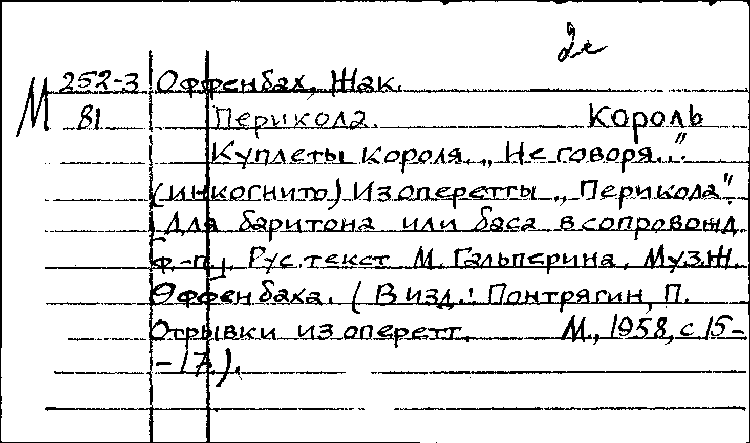 2е
М 252-3 Оффенбах, Жак.
81 Перикола. Король
Куплеты короля. „Не говоря..."
(инкогнито) Из оперетты „Перикола".
(Для баритона или баса в сопровожд.
ф.-п.). Рус. текст М. Гальперина. Муз. Ж.
Оффенбаха. (В изд.: Понтрягин, П.
Отрывки из оперетт. М., 1958, с. 15-
-17.).